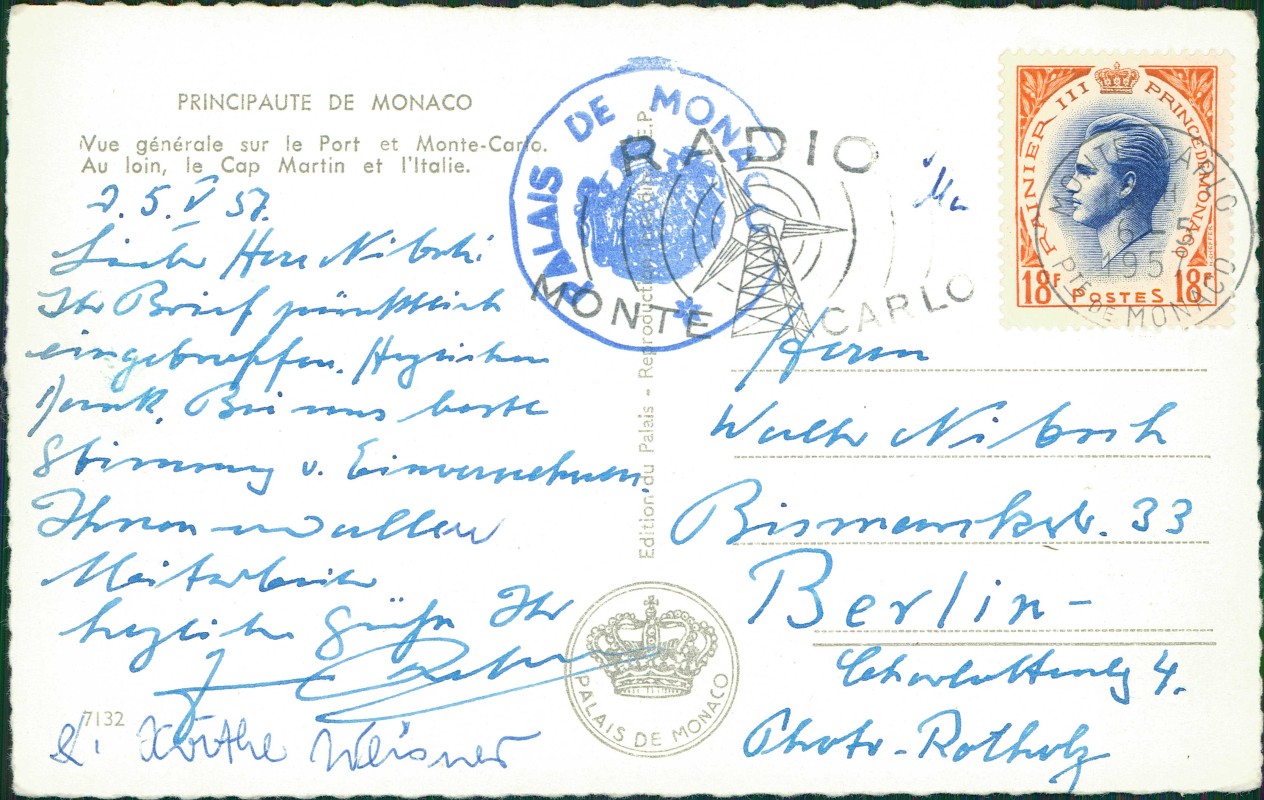 PRINCIPAUTE DE MONACO
Vue générale sur le Port et Monte-Carlo.
Au loin, le Cap Martin et l'Italie.
5. V 57.
Lieber Herr Nitsch
Ihr Brief pünktlich
eingetroffen. Herzlichen
Dank. Bei uns beste
Stimmung u. Einvernehmen
Ihnen und allen
Mitarbeiter
herzliche Grüße Ihr
Käthe Meisner
7132
PALAIS DE MONACO
RADIO
MONTE CARLO
Edition du Palais - Reproduction
PALAIS DE MONACO
RAINIER III PRINCE DE MONACO
18F POSTES 18F
MONTE-CARLO
PTE DE MONACO
Herrn
Walter
Bismarckstr. 33
Berlin-
Charlottenbg 4.
Photo-Rotholz